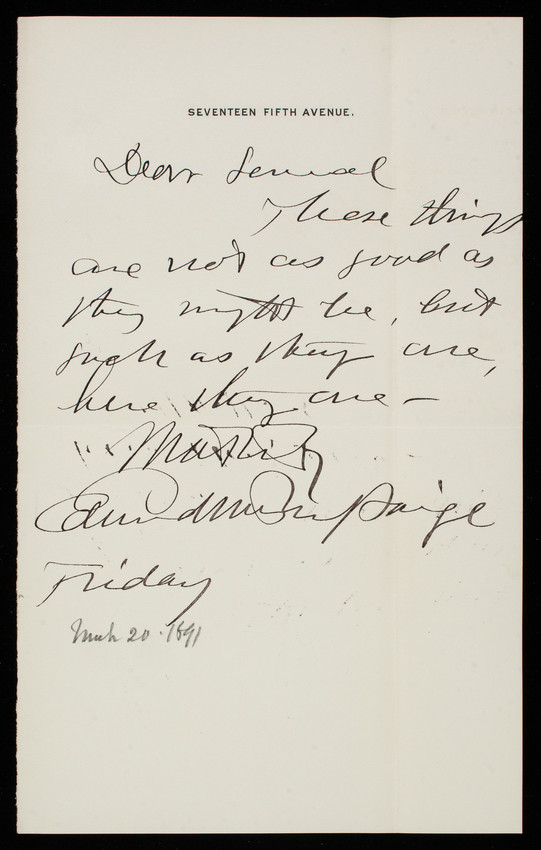 SEVENTEEN FIFTH AVENUE.
Dear General
These things
are not as good as
they might be, but
such as they are,
here they are –
Paige
Friday
March 20. 1891